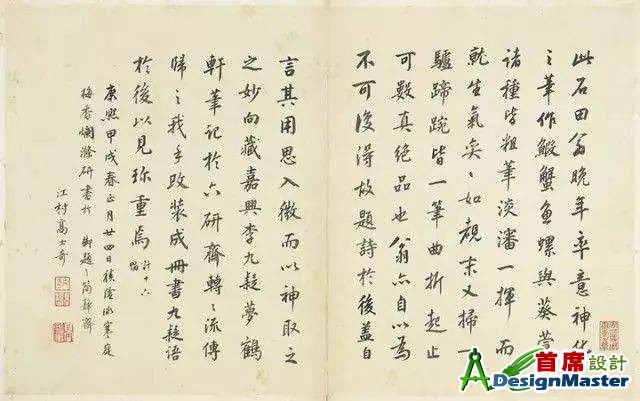 此石田翁晚年率意神化
之筆作鰕蟹魚螺與葵萱
諸種皆粗筆淡瀋一揮而
就生氣奕〻如覩末又掃一
驢蹄踠皆一筆曲折起止
可數真絕品也翁亦自以為
不可復得故題詩於後蓋自
言其用思入微而以神取之
之妙向藏嘉興李九疑夢鶴
軒筆記於六研齋轉〻流傳
歸之我手改裝成冊書九疑語
於後以見珍重焉 計十六幅
康熙甲戌春正月廿四日積陰微寒庭
梅香爛滌研書於 御題〻簡靜齋
江村高士奇
首席設計
DesignMaster